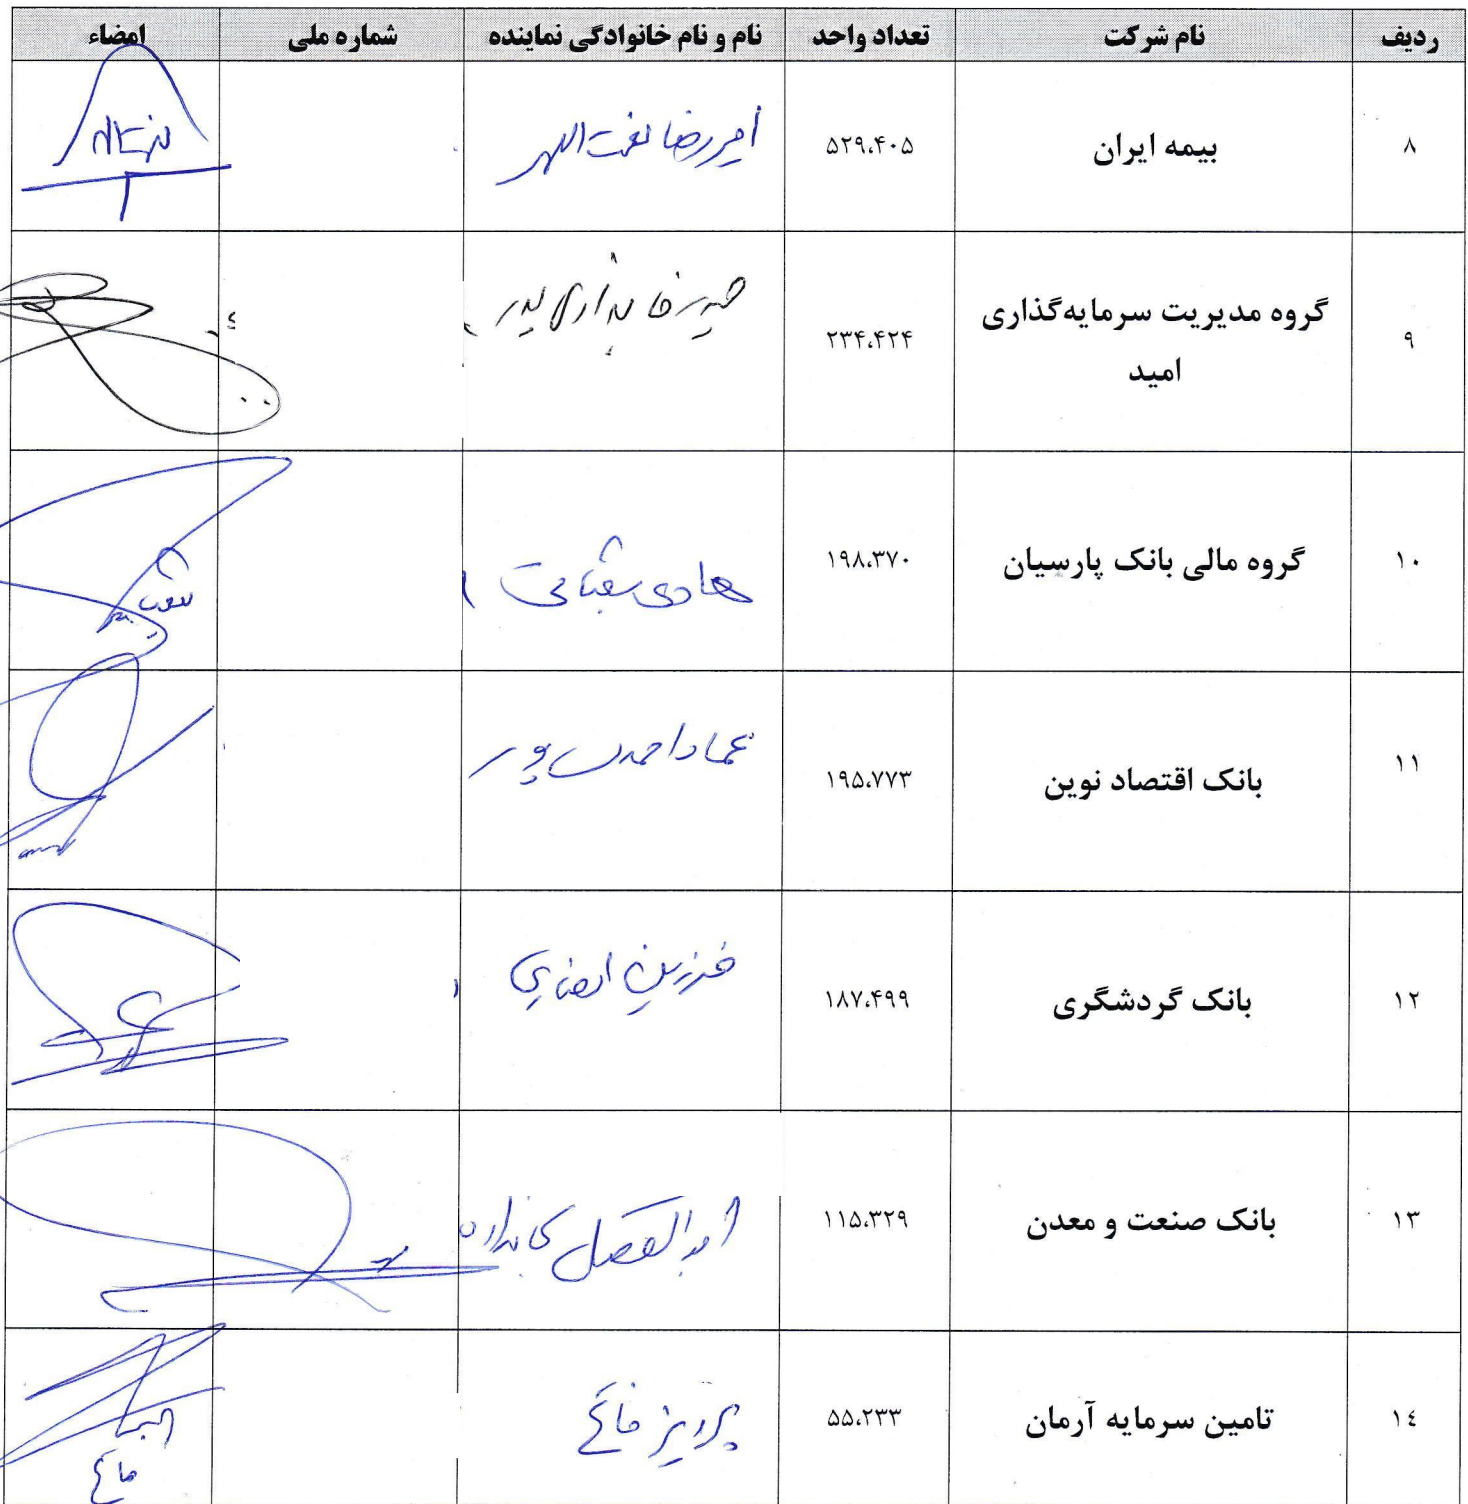 ردیف نام شرکت تعداد واحد نام و نام خانوادگی نماینده شماره ملی امضاء
۸ بیمه ایران ۵۲۹،۴۰۵ امیررضا نعمت اللهی
۹ گروه مدیریت سرمایه‌گذاری امید ۲۳۴،۴۲۴
۱۰ گروه مالی بانک پارسیان ۱۹۸،۳۷۰ هادی
۱۱ بانک اقتصاد نوین ۱۹۵،۷۷۳ عماد احمدی پور
۱۲ بانک گردشگری ۱۸۷،۴۹۹ فرزین
۱۳ بانک صنعت و معدن ۱۱۵،۳۲۹ ابوالفضل
۱٤ تامین سرمایه آرمان ۵۵،۲۳۳ پرویز فاتح